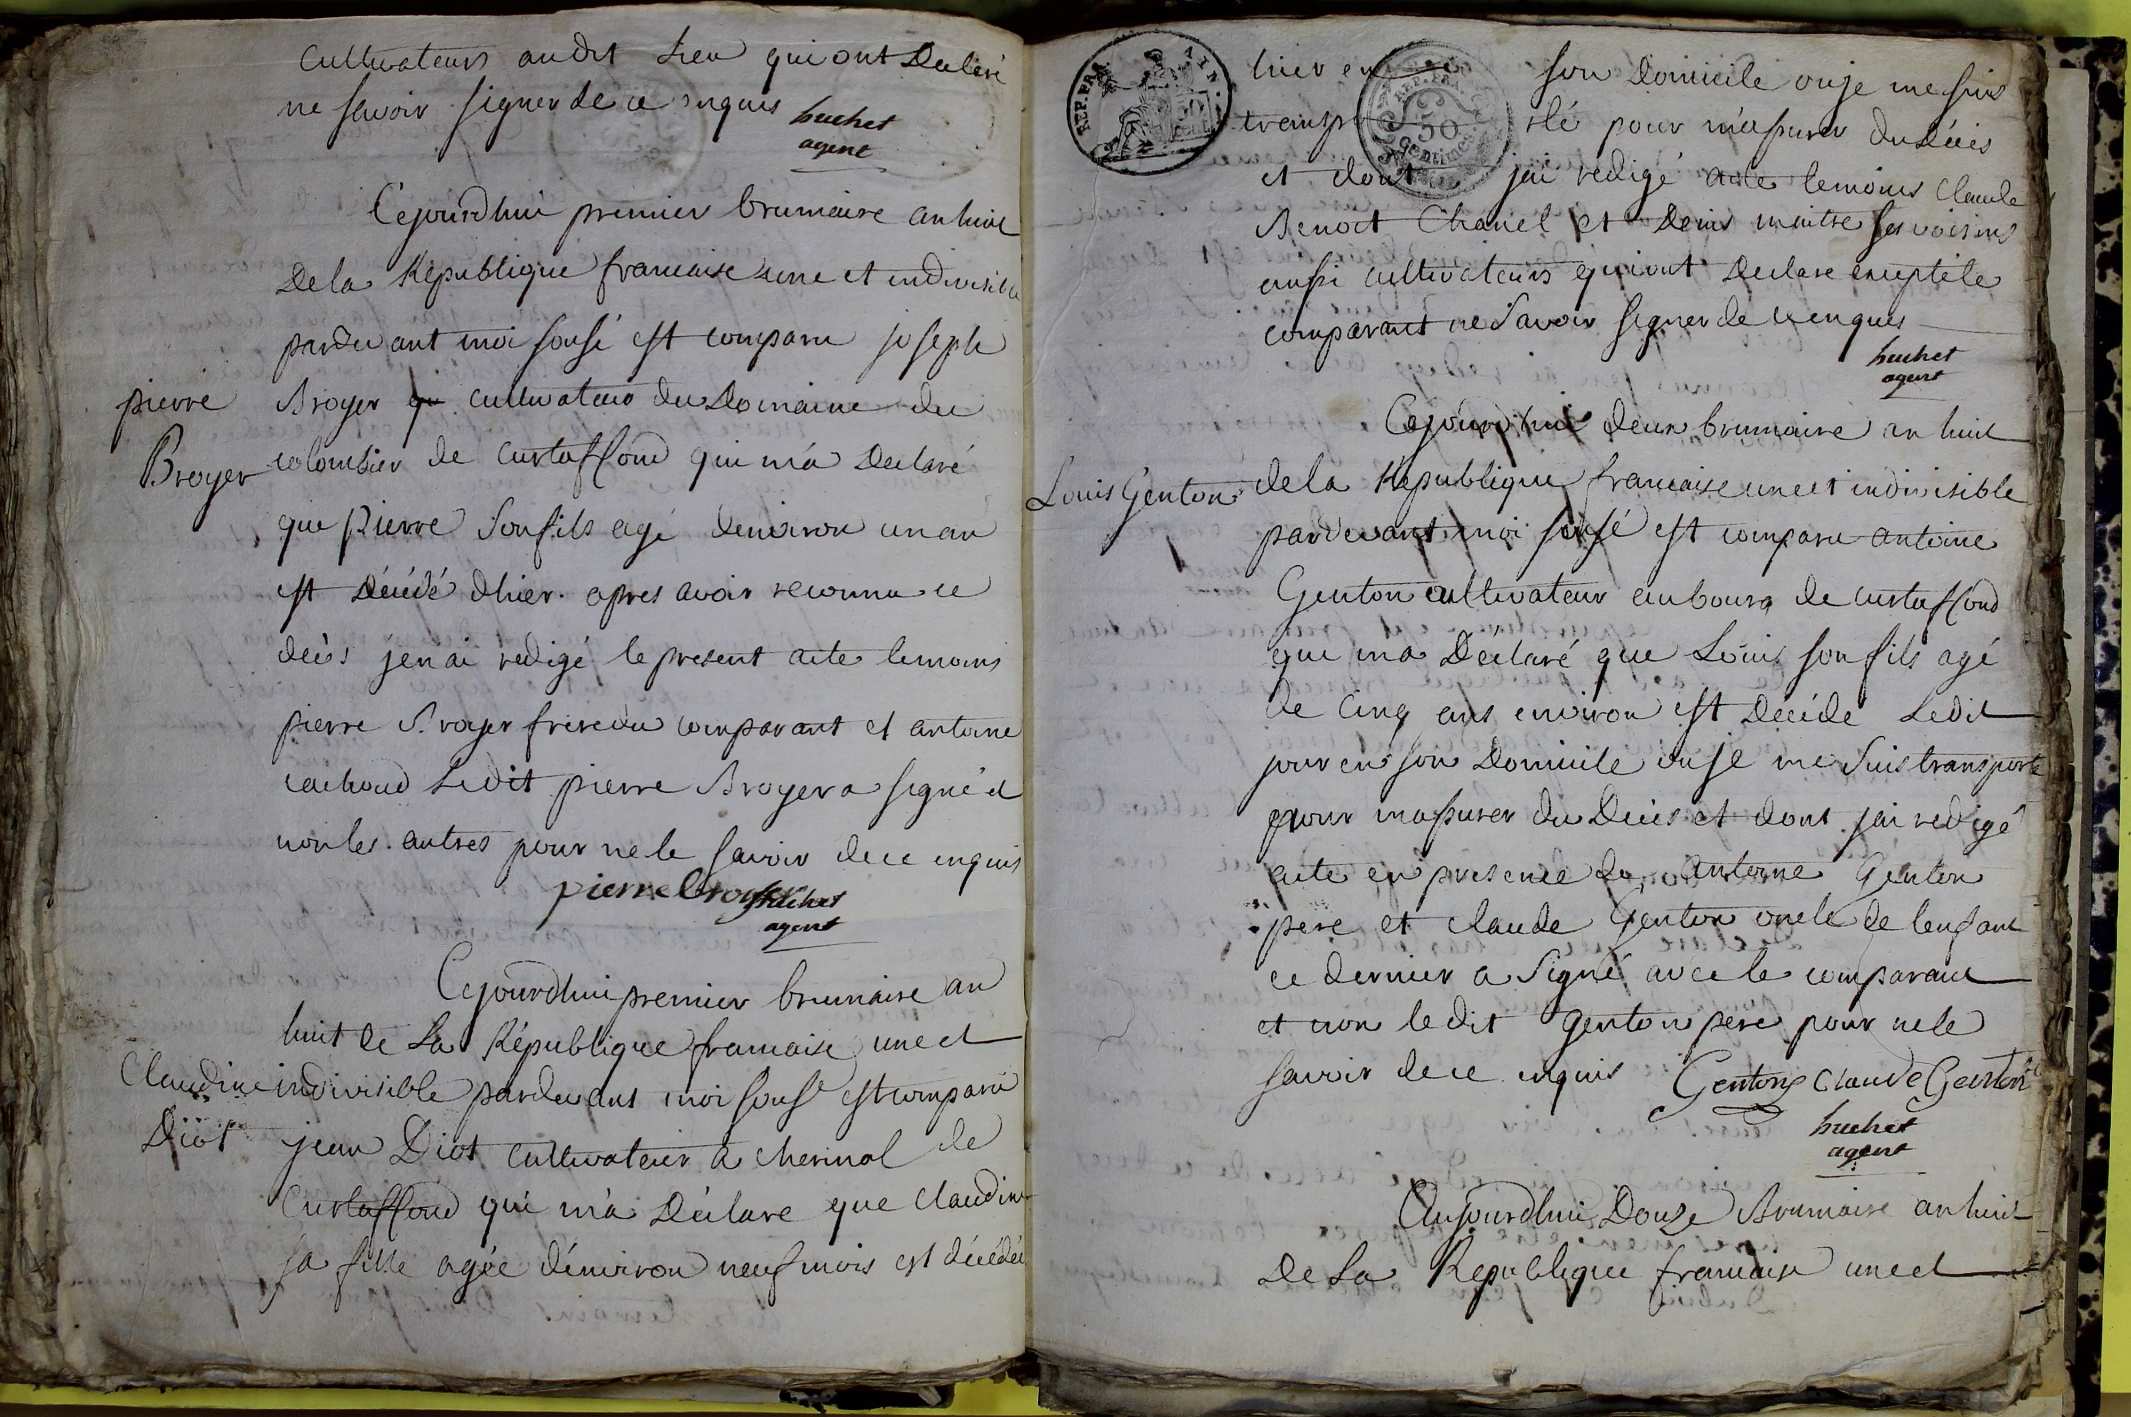 Cultivateurs audit Lieu qui ont Declaré
ne savoir signer de ce enquis
huchet
agent
Cejourdhui premier brumaire an huit
De la République francaise une et indivisible
pardevant moi sousé est comparu joseph
pierre
Broyer
Broyer cultivateur du Domaine du
colombier de Curtaffond qui m'a Declaré
que pierre son fils agé denviron un an
est Décédé d'hier. apres avoir reconnu ce
décès jen ai redigé le present acte temoins
pierre Broyer frere du comparant et antoine
cachoud Ledit pierre Broyer a signé et
non les autres pour ne le savoir de ce enquis
pierre broyer
huchet
agent
Cejourdhui premier brumaire an
huit de La République francaise une et
Claudine
Diot
indivisible pardevant moi sousé est comparu
jean Diot cultivateur à chermol de
Curtaffond qui m'a Déclaré que Claudine
sa fille agée d'environ neuf mois est décédée
REP. FRA. AIN.
REP. FRA.
50
Centimes
hier en son Domicile ou je me suis
transporté pour m'assurer du Décès
et dont j'ai redigé acte temoins Claude
Benoit Chanel et Denis maitre ses voisins
aussi cultivateurs qui ont Declare excepté le
comparant ne savoir signer de ce enquis
huchet
agent
Cejourdhui deux brumaire an huit
Louis Genton
de la République francaise une et indivisible
pardevant moi sousé est comparu antoine
Genton cultivateur au bourg de Curtaffond
qui m'a Déclaré que Louis son fils agé
de Cinq ans environ est Décédé Ledit
jour en son Domicile ou je me suis transporté
pour m'assurer du Décès et dont j'ai redigé
acte en presence de antoine Genton
pere et claude Genton oncle de lenfant
ce dernier a signé avec le comparant
et non le dit genton pere pour ne le
savoir de ce enquis
Genton Claude Genton
huchet
agent
Aujourdhui Douze Brumaire an huit
De La République francaise une et